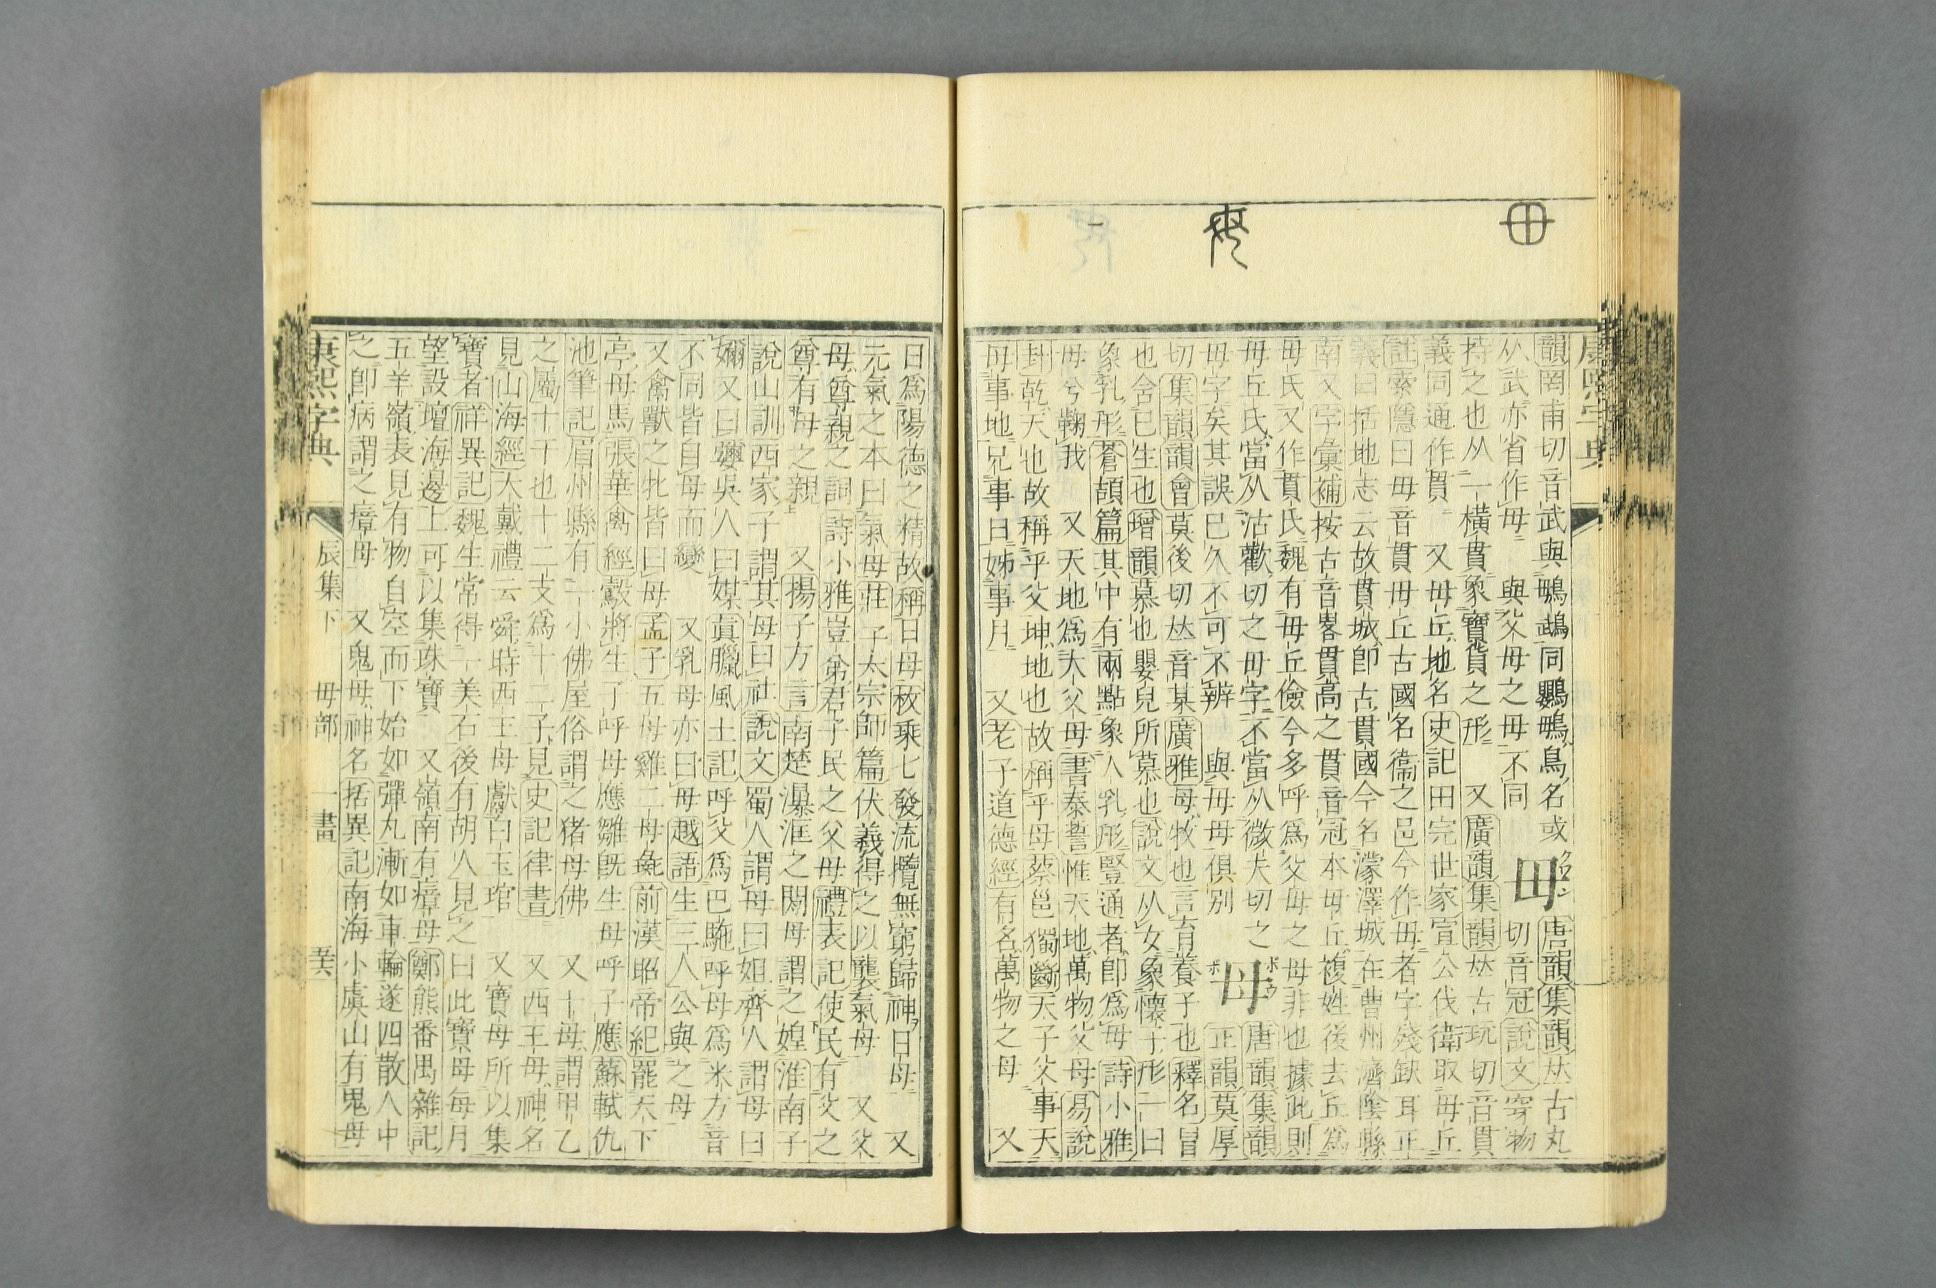 康熙字典
韻罔甫切音武與鵡䳇同鸚鵡鳥名或
从武亦省作毋 與父母之母不同
毌
唐韻集韻𠀤古丸
切音冠說文穿物
持之也从一橫貫象寶貨之形 又廣韻集韻𠀤古玩切音貫
義同通作貫 又毌丘地名史記田完世家宣公伐衞取毌丘
註索隱曰毌音貫毌丘古國名衞之邑今作毋者字殘缺耳正
義曰括地志云故貫城卽古貫國今名濛澤城在曹州濟陰縣
南又字彙補按古音畧貫高之貫音冠本毌丘複姓後去丘爲
毌氏又作貫氏魏有毌丘儉今多呼爲父母之母非也據此則
毌丘氏當从沽歡切之毌字不當从微夫切之
毋字矣其誤已久不可不辨 與毋母俱別
母
唐韻集韻
正韻莫厚
切集韻韻會莫後切𠀤音某廣雅母牧也言育養子也釋名冒
也含已生也增韻慕也嬰兒所慕也說文从女象懷子形一曰
象乳形蒼頡篇其中有兩點象人乳形豎通者卽爲毋詩小雅
母兮鞠我 又天地爲大父母書泰誓惟天地萬物父母易說
卦乾天也故稱乎父坤地也故稱乎母蔡邕獨斷天子父事天
母事地兄事日姊事月 又老子道德經有名萬物之母 又
日爲陽德之精故稱日母枚乘七發流攬無窮歸神日母 又
元氣之本曰氣母莊子大宗師篇伏羲得之以襲氣母 又父
母尊親之詞詩小雅豈弟君子民之父母禮表記使民有父之
尊有母之親 又揚子方言南楚瀑洭之閒母謂之媓淮南子
說山訓西家子謂其母曰社說文蜀人謂母曰姐齊人謂母曰
嬭又曰㜷吳人曰媒眞臘風土記呼父爲巴駞呼母爲米方音
不同皆自母而變 又乳母亦曰母越語生三人公與之母
又禽獸之牝皆曰母孟子五母雞二母彘前漢昭帝紀罷天下
亭母馬張華禽經鷇將生子呼母應雛旣生母呼子應蘇軾仇
池筆記眉州縣有一小佛屋俗謂之猪母佛 又十母謂甲乙
之屬十干也十二支爲十二子見史記律書 又西王母神名
見山海經大戴禮云舜時西王母獻白玉琯 又寶母所以集
寶者祥異記魏生常得一美石後有胡人見之曰此寶母每月
望設壇海邊上可以集珠寶 又嶺南有瘴母鄭熊番禺雜記
五羊嶺表見有物自空而下始如彈丸漸如車輪遂四散人中
之卽病謂之瘴母 又鬼母神名括異記南海小虞山有鬼母
康熙字典
辰集下 毋部 一畫